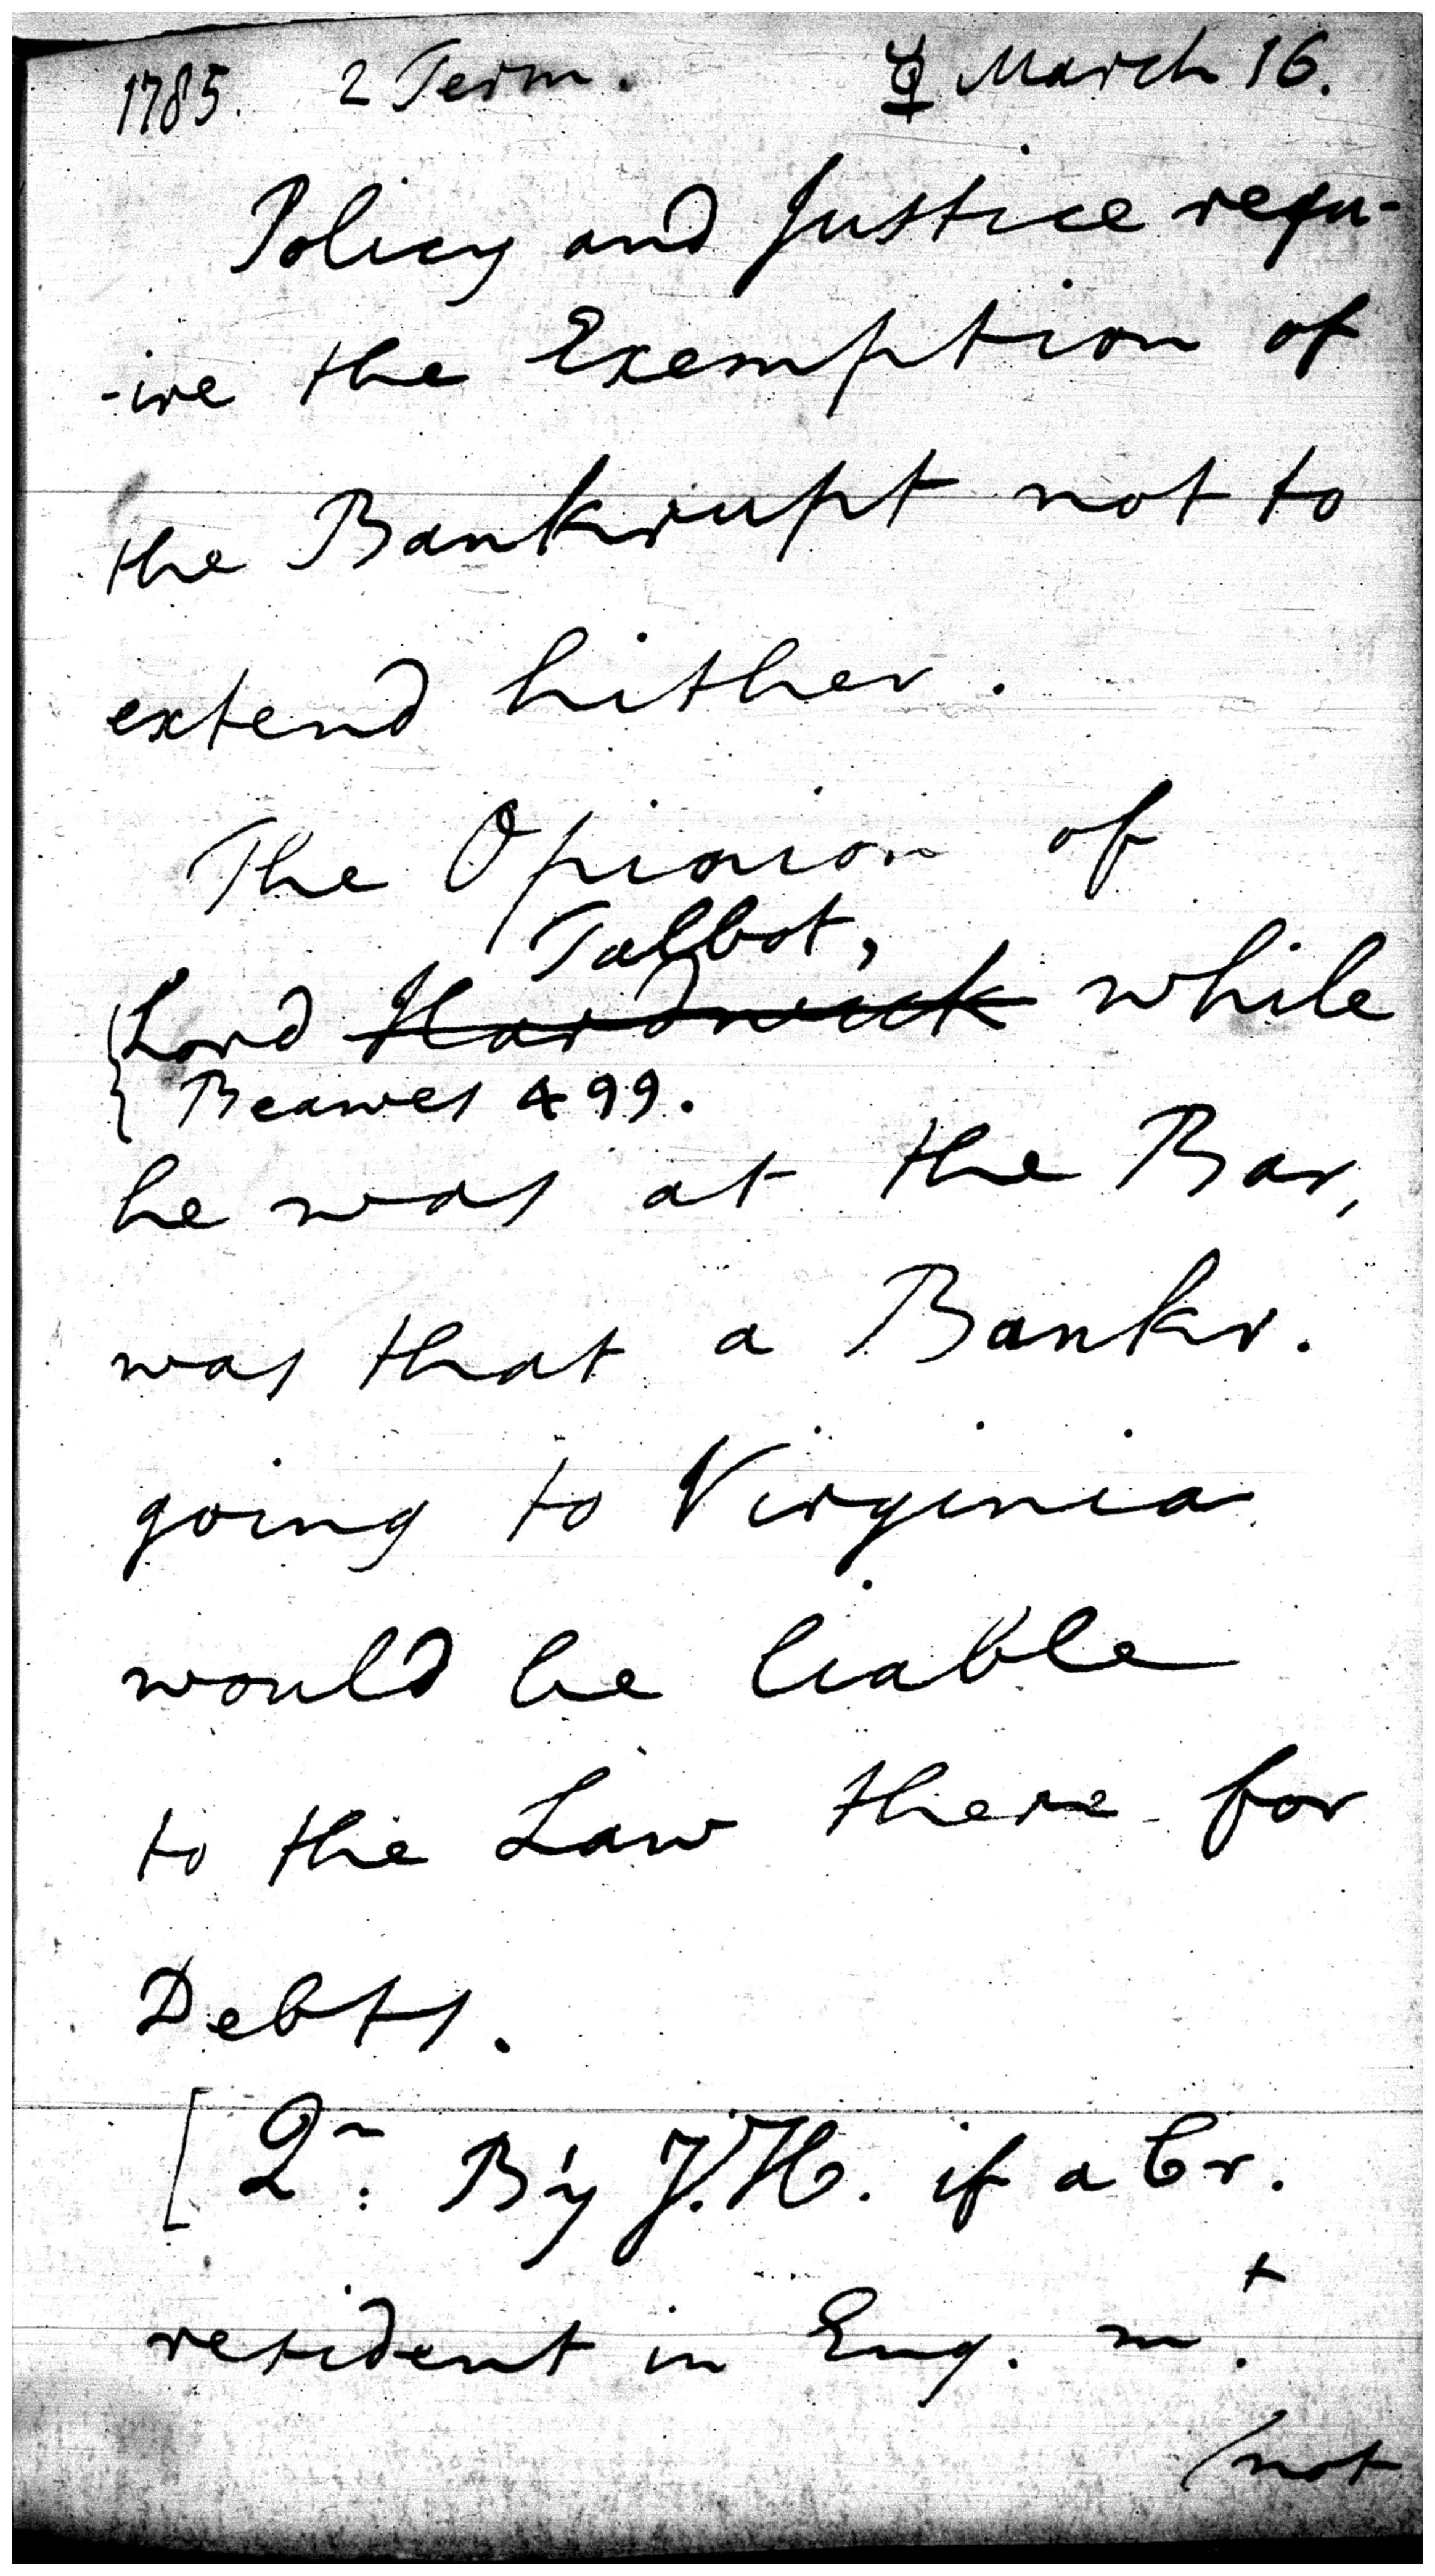 1785. 2 Term. ☿ March 16.
Policy and Justice requ-
-ire the Exemption of
the Bankrupt not to
extend hither.
The Opinion of
Talbot,
Lord Hardwick while
Beawes 499.
he was at the Bar,
was that a Bankr.
going to Virginia
would be liable
to the Law there for
Debts.
[Qr: By J.H. if a Cr.
resident in Eng. m.t
(not